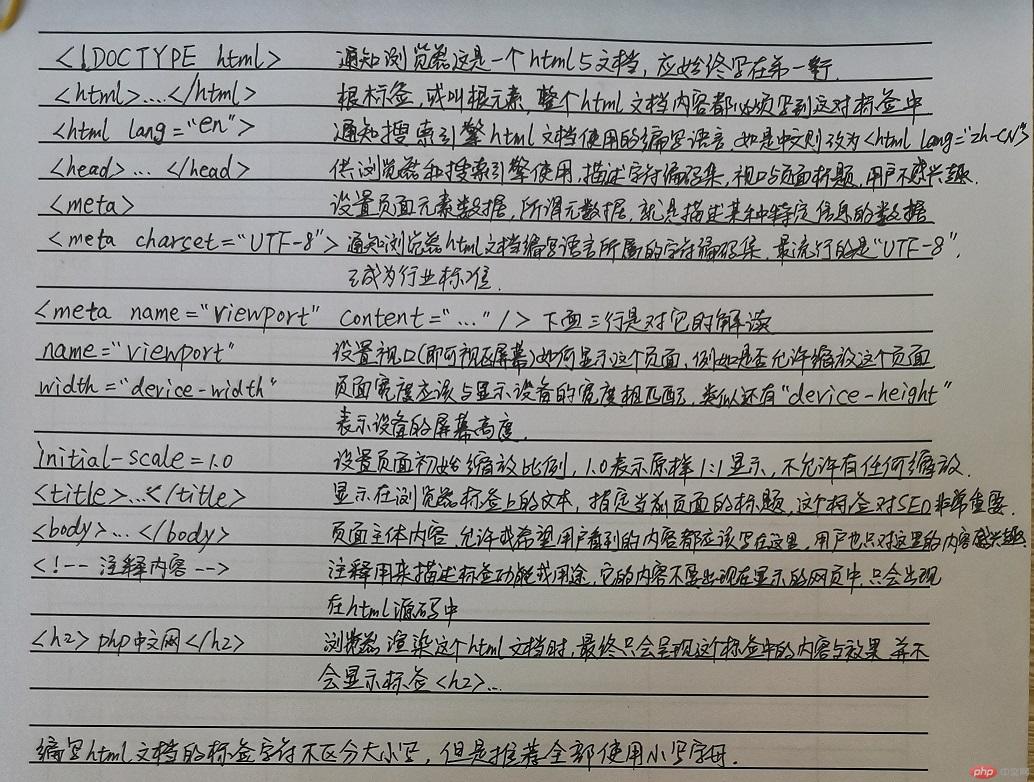 <!DOCTYPE html> 通知浏览器这是一个html5文档，应始终写在第一行.
<html>....</html> 根标签，或叫根元素，整个html文档内容都必须写到这对标签中
<html lang="en"> 通知搜索引擎html文档使用的编写语言，如是中文则改为<html lang="zh-CN">
<head>... </head> 供浏览器和搜索引擎使用，描述字符编码集，视口与页面标题，用户不感兴趣.
<meta> 设置页面元素数据，所谓元数据，就是描述某种特定信息的数据
<meta charset="UTF-8"> 通知浏览器html文档编写语言所属的字符编码集，最流行的是"UTF-8"，
已成为行业标准.
<meta name="viewport" content="..." /> 下面三行是对它的解读
name="viewport" 设置视口(即可视区屏幕)如何显示这个页面，例如是否允许缩放这个页面
width="device-width" 页面宽度应该与显示设备的宽度相匹配，类似还有"device-height"
表示设备的屏幕高度.
initial-scale=1.0 设置页面初始缩放比例，1.0表示原样1:1显示，不允许有任何缩放.
<title>...</title> 显示在浏览器标签上的文本，指定当前页面的标题，这个标签对SEO非常重要.
<body>... </body> 页面主体内容，允许或希望用户看到的内容都应该写在这里，用户也只对这里的内容感兴趣
<!-- 注释内容 --> 注释用来描述标签功能或用途，它的内容不会出现在显示的网页中，只会出现
在html源码中
<h2>php中文网</h2> 浏览器渲染这个html文档时，最终只会呈现这个标签中的内容与效果，并不
会显示标签<h2>...
编写html文档的标签字符不区分大小写，但是推荐全部使用小写字母.
php 中文网